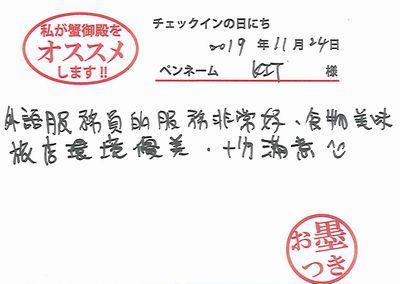 私が蟹御殿を
オススメ
します!!
チェックインの日にち
2019 年 11 月 24 日
ペンネーム KIT 様
外語服務員的服務非常好、食物美味
旅店環境優美、十分滿意
お墨
つき